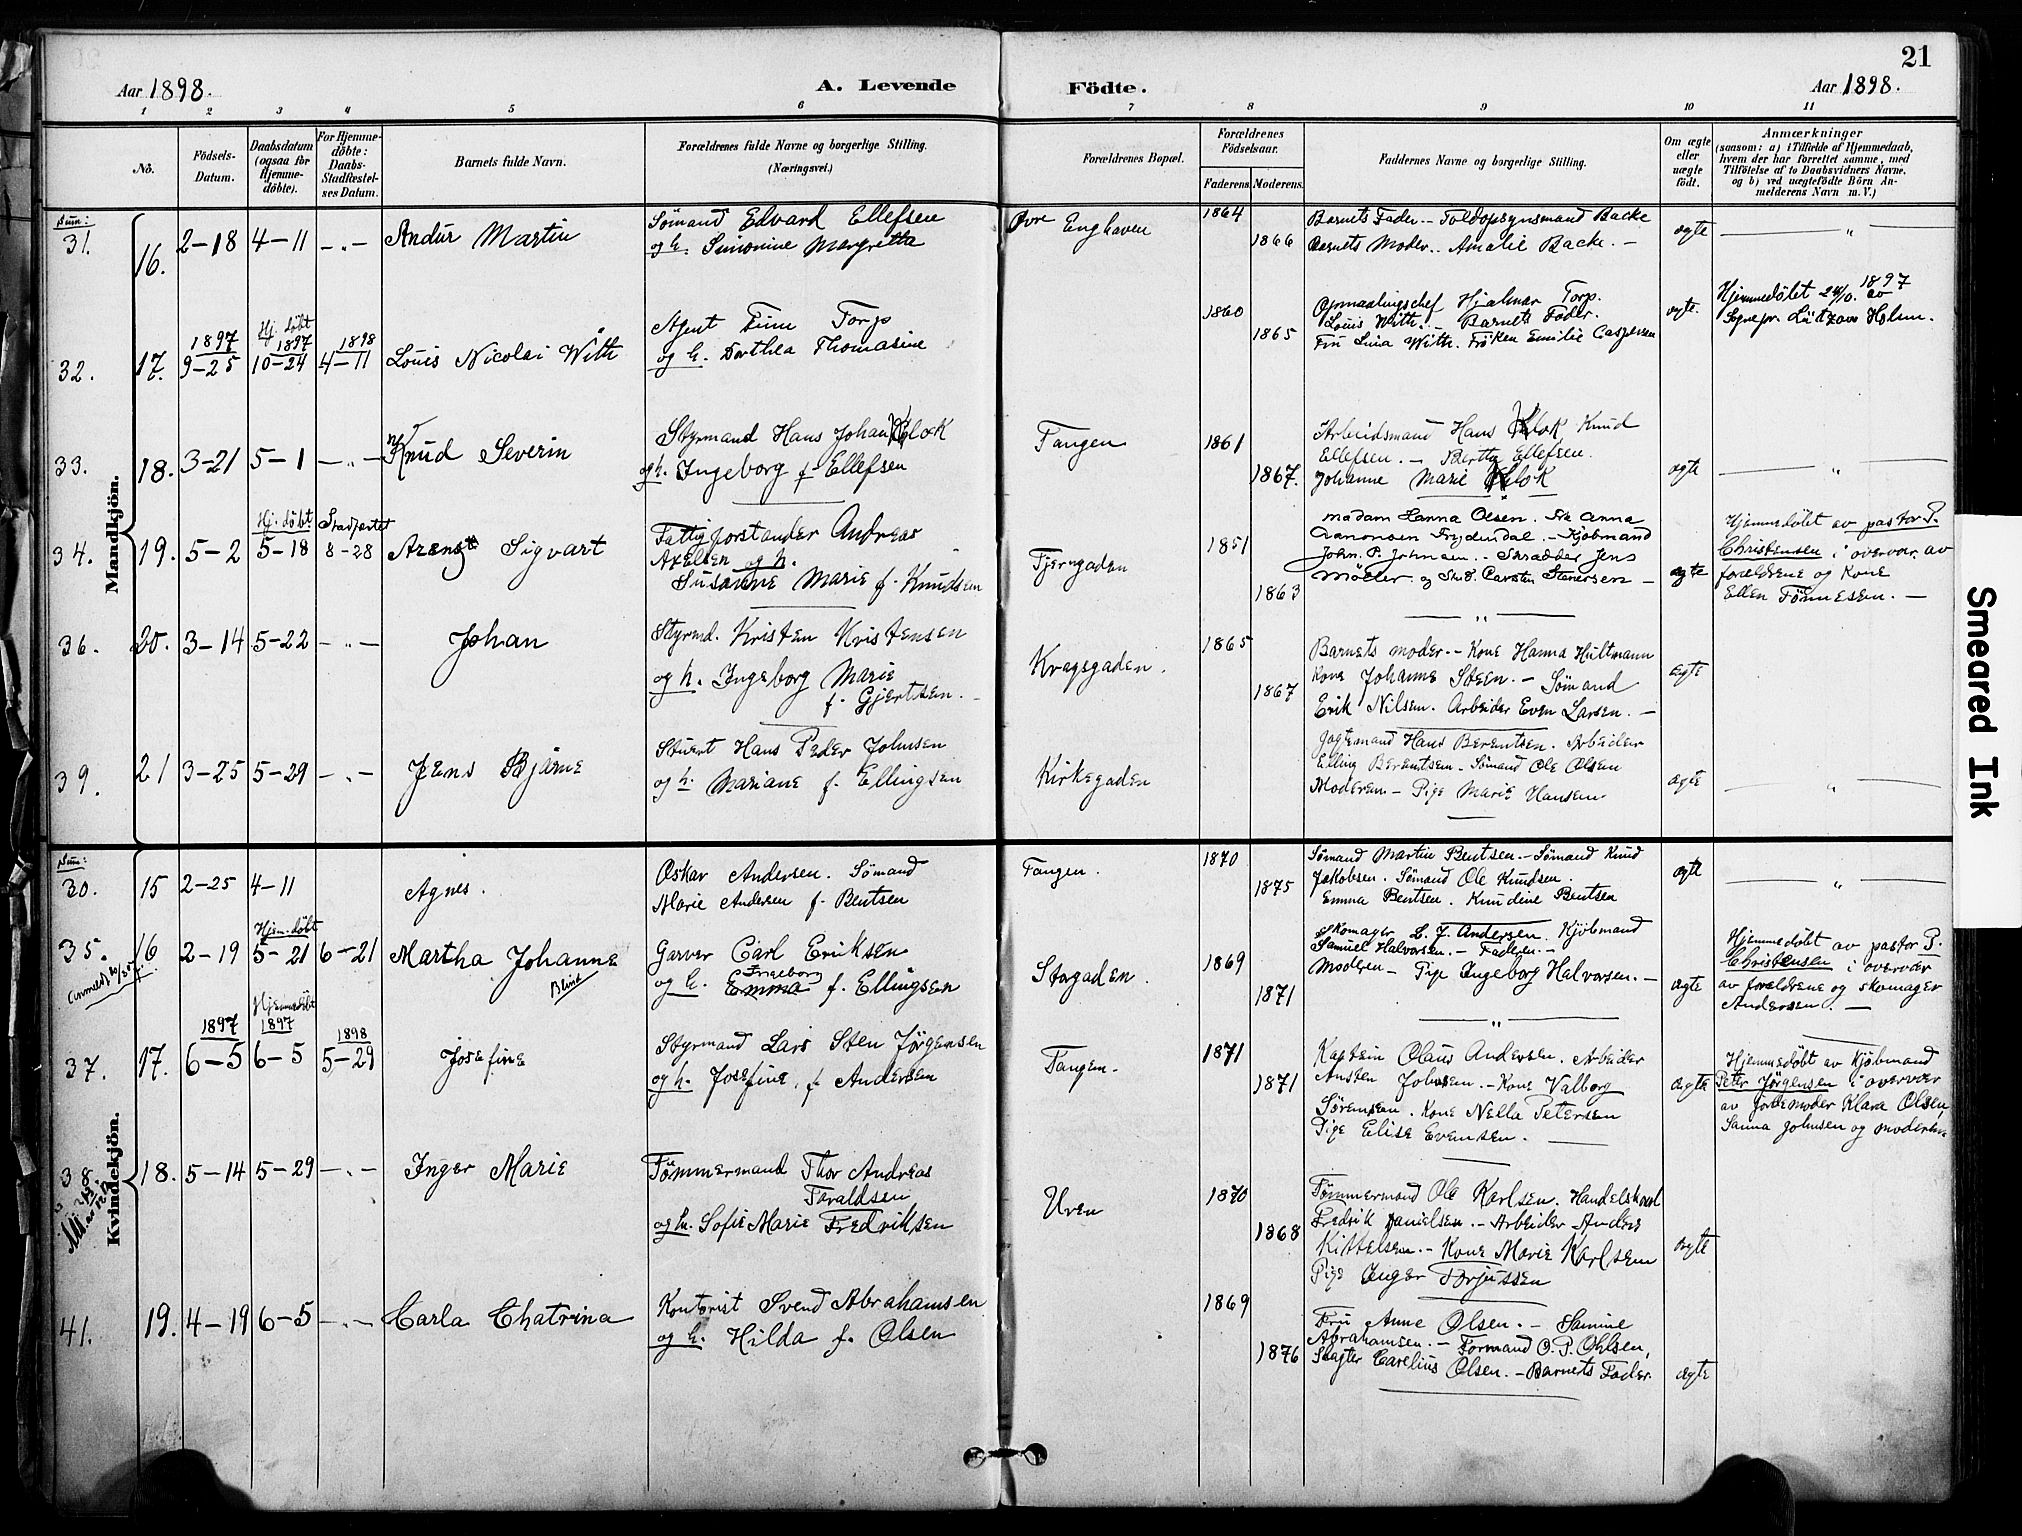 21
Aar 1898.
A. Levende
Födte.
Aar 1898.
1 2 3 4 5 6 7 8 9 10 11
No.
Födsels-
Datum.
Daabsdatum
(ogsaa for
Hjemme-
döbte).
For Hjemme-
döbte:
Daabs-
Stadfæstel-
ses Datum.
Barnets fulde Navn.
Forældrenes fulde Navne og borgerlige Stilling.
(Næringsvei.)
Forældrenes Bopæl.
Forældrenes
Födselsaar.
Faderens. Moderens.
Faddernes Navne og borgerlige Stilling.
Om ægte
eller
uægte
födt.
Anmærkninger
(saasom: a) i Tilfælde af Hjemmedaab,
hvem der har forrettet samme, med
Tilföielse af to Daabsvidners Navne,
og b) ved uægtefödte Börn An-
melderens Navn m. V.)
Mandkjön.
Sum:
31.
16.
2-18 4-11 -"-
Martin
Sømand Edvard Ellefsen
og h. Simonine Margrethe
Øvre Enghaven
1864
1866
Barnets Fader - Toldopsynsmand Backe
Barnets Moder. Amalie Backe. -
ægte
"
32.
17.
1897
9-25
Hj. døbt
1897
10-24
1898
4-11
Louis Nicolai With
Agent Finn Torp
og h. Dorthea Thomasine
1860
1865
Opmaalingschef Hjalmar Torp.
Louis With. - Barnets Fader.
Fru Lina With. Frøken Emilie Caspersen
ægte.
1897
Hjemmedøbt 24/10. av
Sognepr. Lützow Holm.
33.
18. 3-21 5-1 -"-
Knud Severin
Styrmand Hans Johan Klok
og h. Ingeborg f. Ellefsen
Tangen
1861
1867.
Arbeidsmand Hans Klok Knud
Ellefsen. - Berthe Ellefsen.
Johanne Marie Klok
ægte
"
34.
19. 5-2
Hj. døbt
5-18
Stadfæstet
8-28
Arent Sigvart
Fattigforstander Andreas
Axelsen og h.
Susanne Marie f. Knudsen
Tjerngaden
1851
1863
Madam Hanna Olsen. Frk Anna
Aanonsen Frydendal. - Kjøbmand
John. P. Johnsen. - Skrædder Jens
Møller og Skrd. Carsten Stenersen -
"
ægte
Hjemmedøbt av pastor P.
Christensen i overvær av
forældrene og Kone
Ellen Tønnesen. -
36.
20. 3-14 5-22 -"-
Johan
Styrmd. Kristen Kristensen
og h. Ingeborg Marie
f. Gjertsen.
Kragsgaden.
1865
1867
Barnets moder. - Kone Hanna Hultmann
Kone Johanne Steen. - Sømand
Erik Nilsen. Arbeider Even Larsen. -
ægte
39.
21 3-25 5-29 -"-
Jens Bjarne
Stuert Hans Peder Johnsen
og h. Mariane f. Ellingsen
Kirkegaden
Jagtemand Hans Berentsen. Arbeider
Elling Berentsen - Sømand Ole Olsen
Moderen - Pige Marie Hansen.
ægte
"
Kvindekjön.
Sum:
30.
15 2-25 4-11
Agnes.
Oskar Andersen. Sømand
Marie Andersen f. Bentsen
Tangen.
1870
1875
Sømand Martin Bentsen. - Sømand Knud
Jakobsen. Sømand Ole Knudsen.
Emma Bentsen. Knudine Bentsen
ægte
"
35.
16 2-19
Hjem.døbt
5-21 6-21
Martha Johanne
Blind
Garver Carl Eriksen
Ingeborg
og h. Emma f. Ellingsen
Storgaden
1869
1871
Skomager L. J. Andersen. Kjøbmand
Samuel Halvorsen. - Faderen -
Moderen - Pige Ingeborg Halvorsen. -
"
ægte
Hjemmedøbt av pastor P.
Christensen i overvær
av forældrene og skomager
Andersen. -
37.
17.
1897
6-5
Hjemmedøbt
1897
6-5
1898
5-29
Josefine
Styrmand Lars Sten Jørgensen
og h. Josefine f. Andersen
Tangen.
1871
1871
Kaptein Olaus Andersen. Arbeider
Austen Johnsen. - Kone Valborg
Sørensen. Kone Nella Petersen
Pige Elise Evensen.
ægte
Hjemmedøbt av Kjøbmand
Peter Jørgensen i overvær
av jordemoder Klara Olsen,
Sanna Johnsen og moderen.
38.
18. 5-14 5-29 -"-
Inger Marie
Tømmermand Thor Andreas
Taraldsen
og h. Sofie Marie Fredriksen
Uren
1870
1868
Tømmermand Ole Karlsen. Handelskarl
Fredrik Danielsen. - Arbeider Anders
Kittelsen. - Kone Marie Karlsen
Pige Inger Torjussen
ægte
41.
19. 4-19 6-5 -"-
Carla Chatrina
Kontorist Svend Abrahamsen
og h. Hilda f. Olsen
1869
1876
Fru Anne Olsen. - Samine
Abrahamsen. - Formand O. P. Ohlsen,
Slagter Carelius Olsen. - Barnets Fader.
ægte
Smeared Ink